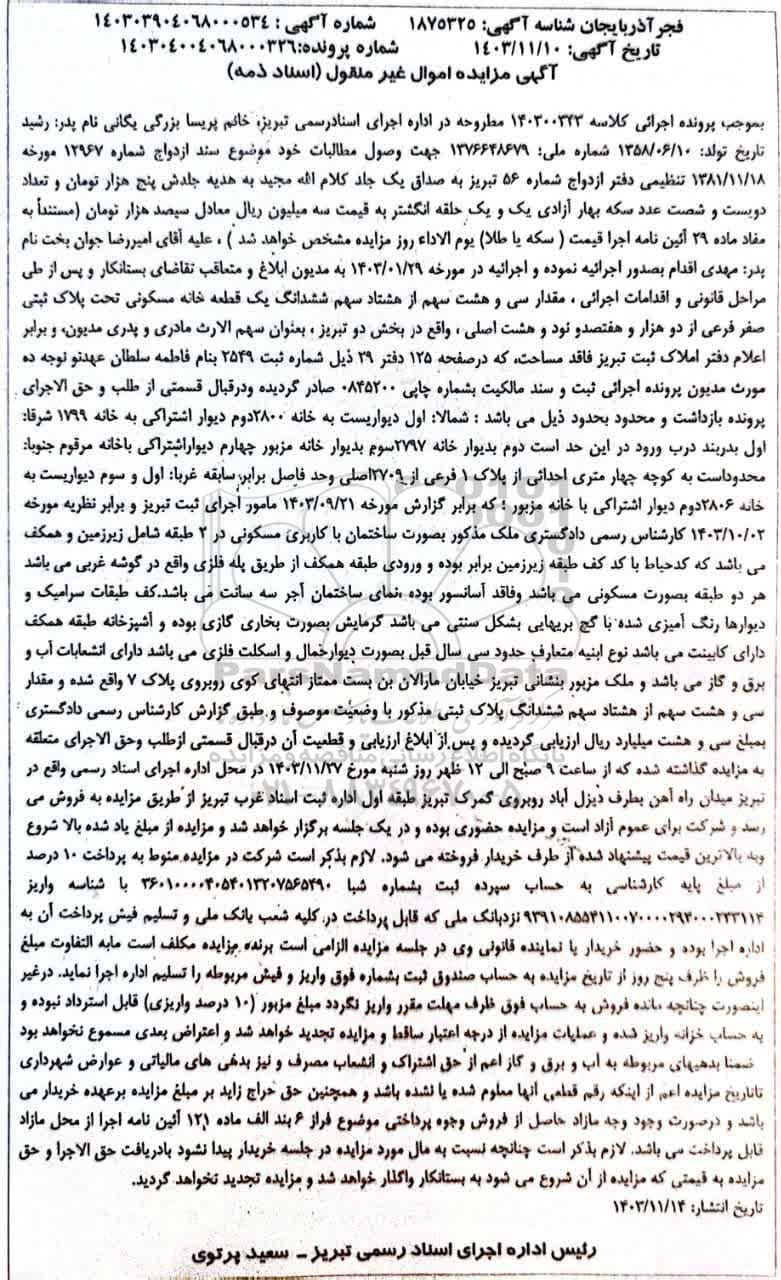 فجرآذربایجان شناسه آگهی: ۱۸۷۵۳۲۵ شماره آگهی : ۱۴۰۳۰۳۹۰۴۰۶۸۰۰۰۵۳۴
تاریخ آگهی: ۱۴۰۳/۱۱/۱۰ شماره پرونده:۱۴۰۳۰۴۰۰۴۰۶۸۰۰۰۳۲۶
آگهی مزایده اموال غیر منقول (اسناد ذمه)
بموجب پرونده اجرائی کلاسه ۱۴۰۳۰۰۳۴۳ مطروحه در اداره اجرای اسنادرسمی تبریز، خانم پریسا بزرگی یگانی نام پدر: رشید
تاریخ تولد: ۱۳۵۸/۰۶/۱۰ شماره ملی: ۱۳۷۶۶۴۸۶۷۹ جهت وصول مطالبات خود موضوع سند ازدواج شماره ۱۲۹۶۷ مورخه
۱۳۸۱/۱۱/۱۸ تنظیمی دفتر ازدواج شماره ۵۶ تبریز به صداق یک جلد کلام الله مجید به هدیه جلدش پنج هزار تومان و تعداد
دویست و شصت عدد سکه بهار آزادی یک و یک حلقه انگشتر به قیمت سه میلیون ریال معادل سیصد هزار تومان (مستنداً به
مفاد ماده ۲۹ آئین نامه اجرا قیمت ( سکه یا طلا) یوم الاداء روز مزایده مشخص خواهد شد ) ، علیه آقای امیررضا جوان بخت نام
پدر: مهدی اقدام بصدور اجرائیه نموده و اجرائیه در مورخه ۱۴۰۳/۰۱/۲۹ به مدیون ابلاغ و متعاقب تقاضای بستانکار و پس از طی
مراحل قانونی و اقدامات اجرائی ، مقدار سی و هشت سهم از هشتاد سهم ششدانگ یک قطعه خانه مسکونی تحت پلاک ثبتی
صفر فرعی از دو هزار و هفتصدو نود و هشت اصلی ، واقع در بخش دو تبریز ، بعنوان سهم الارث مادری و پدری مدیون، و برابر
اعلام دفتر املاک ثبت تبریز فاقد مساحت، که درصفحه ۱۲۵ دفتر ۲۹ ذیل شماره ثبت ۲۵۴۹ بنام فاطمه سلطان عهدنو نوجه ده
مورث مدیون پرونده اجرائی ثبت و سند مالکیت بشماره چاپی ۰۸۴۵۲۰۰ صادر گردیده ودرقبال قسمتی از طلب و حق الاجرای
پرونده بازداشت و محدود بحدود ذیل می باشد : شمالا: اول دیواریست به خانه ۲۸۰۰دوم دیوار اشتراکی به خانه ۱۷۹۹ شرقا:
اول بدربند درب ورود در این حد است دوم بدیوار خانه ۲۷۹۷سوم بدیوار خانه مزبور چهارم دیواراشتراکی باخانه مرقوم جنوبا:
محدوداست به کوچه چهار متری احداثی از پلاک ۱ فرعی از ۲۷۰۹اصلی وحد فاصل برابر سابقه غربا: اول و سوم دیواریست به
خانه ۲۸۰۶دوم دیوار اشتراکی با خانه مزبور ؛ که برابر گزارش مورخه ۱۴۰۳/۰۹/۲۱ مامور اجرای ثبت تبریز و برابر نظریه مورخه
۱۴۰۳/۱۰/۰۲ کارشناس رسمی دادگستری ملک مذکور بصورت ساختمان با کاربری مسکونی در ۲ طبقه شامل زیرزمین و همکف
می باشد که کدحیاط با کد کف طبقه زیرزمین برابر بوده و ورودی طبقه همکف از طریق پله فلزی واقع در گوشه غربی می باشد
هر دو طبقه بصورت مسکونی می باشد وفاقد آسانسور بوده ،نمای ساختمان آجر سه سانت می باشد.کف طبقات سرامیک و
دیوارها رنگ آمیزی شده با گچ بریهایی بشکل سنتی می باشد گرمایش بصورت بخاری گازی بوده و آشپزخانه طبقه همکف
دارای کابینت می باشد نوع ابنیه متعارف حدود سی سال قبل بصورت دیوارحمال و اسکلت فلزی می باشد دارای انشعابات آب و
برق و گاز می باشد و ملک مزبور بنشانی تبریز خیابان مارالان بن بست ممتاز انتهای کوی روبروی پلاک ۷ واقع شده و مقدار
سی و هشت سهم از هشتاد سهم ششدانگ پلاک ثبتی مذکور با وضعیت موصوف و طبق گزارش کارشناس رسمی دادگستری
بمبلغ سی و هشت میلیارد ریال ارزیابی گردیده و پس از ابلاغ ارزیابی و قطعیت آن درقبال قسمتی ازطلب وحق الاجرای متعلقه
به مزایده گذاشته شده که از ساعت ۹ صبح الی ۱۲ ظهر روز شنبه مورخ ۱۴۰۳/۱۱/۲۷ در محل اداره اجرای اسناد رسمی واقع در
تبریز میدان راه آهن بطرف دیزل آباد روبروی گمرک تبریز طبقه اول اداره ثبت اسناد غرب تبریز از طریق مزایده به فروش می
رسد و شرکت برای عموم آزاد است و مزایده حضوری بوده و در یک جلسه برگزار خواهد شد و مزایده از مبلغ یاد شده بالا شروع
وبه بالاترین قیمت پیشنهاد شده از طرف خریدار فروخته می شود. لازم بذکر است شرکت در مزایده منوط به پرداخت ۱۰ درصد
از مبلغ پایه کارشناسی به حساب سپرده ثبت بشماره شبا ۳۶۰۱۰۰۰۰۴۰۵۴۰۱۳۲۰۷۵۶۵۴۹۰ با شناسه واریز
۹۳۹۱۰۸۵۵۴۱۱۰۰۷۰۰۰۰۲۹۴۰۰۰۲۳۳۱۱۴ نزدبانک ملی که قابل پرداخت در کلیه شعب بانک ملی و تسلیم فیش پرداخت آن به
اداره اجرا بوده و حضور خریدار یا نماینده قانونی وی در جلسه مزایده الزامی است برنده مزایده مکلف است مابه التفاوت مبلغ
فروش را ظرف پنج روز از تاریخ مزایده به حساب صندوق ثبت بشماره فوق واریز و فیش مربوطه را تسلیم اداره اجرا نماید. درغیر
اینصورت چنانچه مانده فروش به حساب فوق ظرف مهلت مقرر واریز نگردد مبلغ مزبور (۱۰ درصد واریزی) قابل استرداد نبوده و
به حساب خزانه واریز شده و عملیات مزایده از درجه اعتبار ساقط و مزایده تجدید خواهد شد و اعتراض بعدی مسموع نخواهد بود
ضمنا بدهیهای مربوطه به آب و برق و گاز اعم از حق اشتراک و انشعاب مصرف و نیز بدهی های مالیاتی و عوارض شهرداری
تاتاریخ مزایده اعم از اینکه رقم قطعی آنها معلوم شده یا نشده باشد و همچنین حق حراج زاید بر مبلغ مزایده برعهده خریدار می
باشد و درصورت وجود وجه مازاد حاصل از فروش وجوه پرداختی موضوع فراز ۶ بند الف ماده ۱۲۱ آئین نامه اجرا از محل مازاد
قابل پرداخت می باشد. لازم بذکر است چنانچه نسبت به مال مورد مزایده در جلسه خریدار پیدا نشود بادریافت حق الاجرا و حق
مزایده به قیمتی که مزایده از آن شروع می شود به بستانکار واگذار خواهد شد و مزایده تجدید نخواهد گردید.
تاریخ انتشار: ۱۴۰۳/۱۱/۱۴
رئیس اداره اجرای اسناد رسمی تبریز - سعید پرتوی
ParsNamadData
پایگاه اطلاع رسانی مناقصه و مزایده
۰۲۱-۸۸۳۴۹۶۷۰-۵